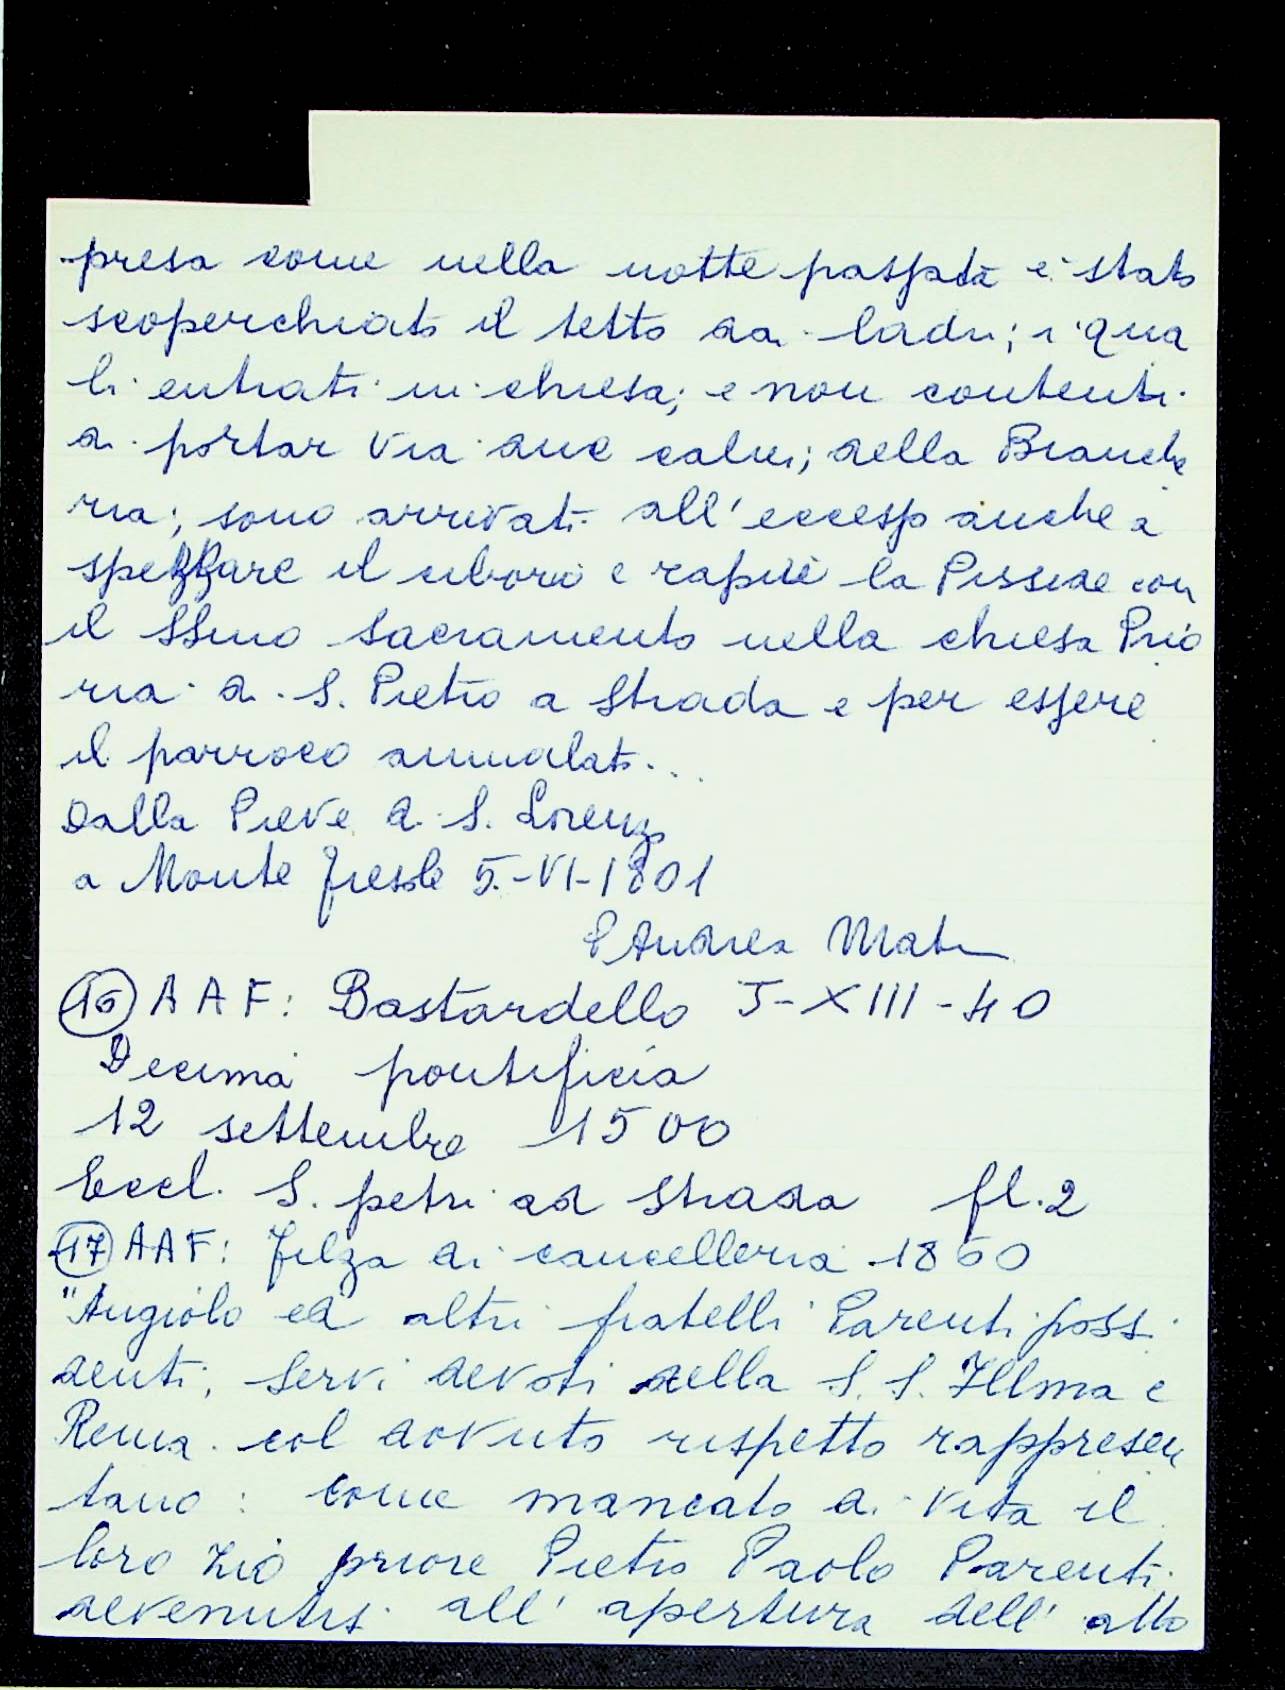 presa come nella notte passata è stato
scoperchiato il tetto da ladri; i qua
li entrati in chiesa; e non contenti
di portar via due calici; della Bianche
ria; sono arrivati all'eccesso anche a
spezzare il ciborio e rapire la Pisside con
il SSmo Sacramento nella chiesa Prio
ria di S. Pietro a Strada e per essere
il parroco ammalato...
Dalla Pieve di S. Lorenzo
a Monte Fiesole 5.-VI-1801
P Andrea Mat
(16) A A F: Bastardello J-XIII-40
Decima pontificia
12 settembre 1500
Eccl. S. petri ad Strada fl.2
(17) AAF: Filza di cancelleria 1860
"Angiolo ed altri fratelli Parenti possi
denti, servi devoti della S. S. Illma e
Rema. col dovuto rispetto rappresen
tano: come mancato di vita il
loro zio priore Pietro Paolo Parenti
devenutis all'apertura dell'atto